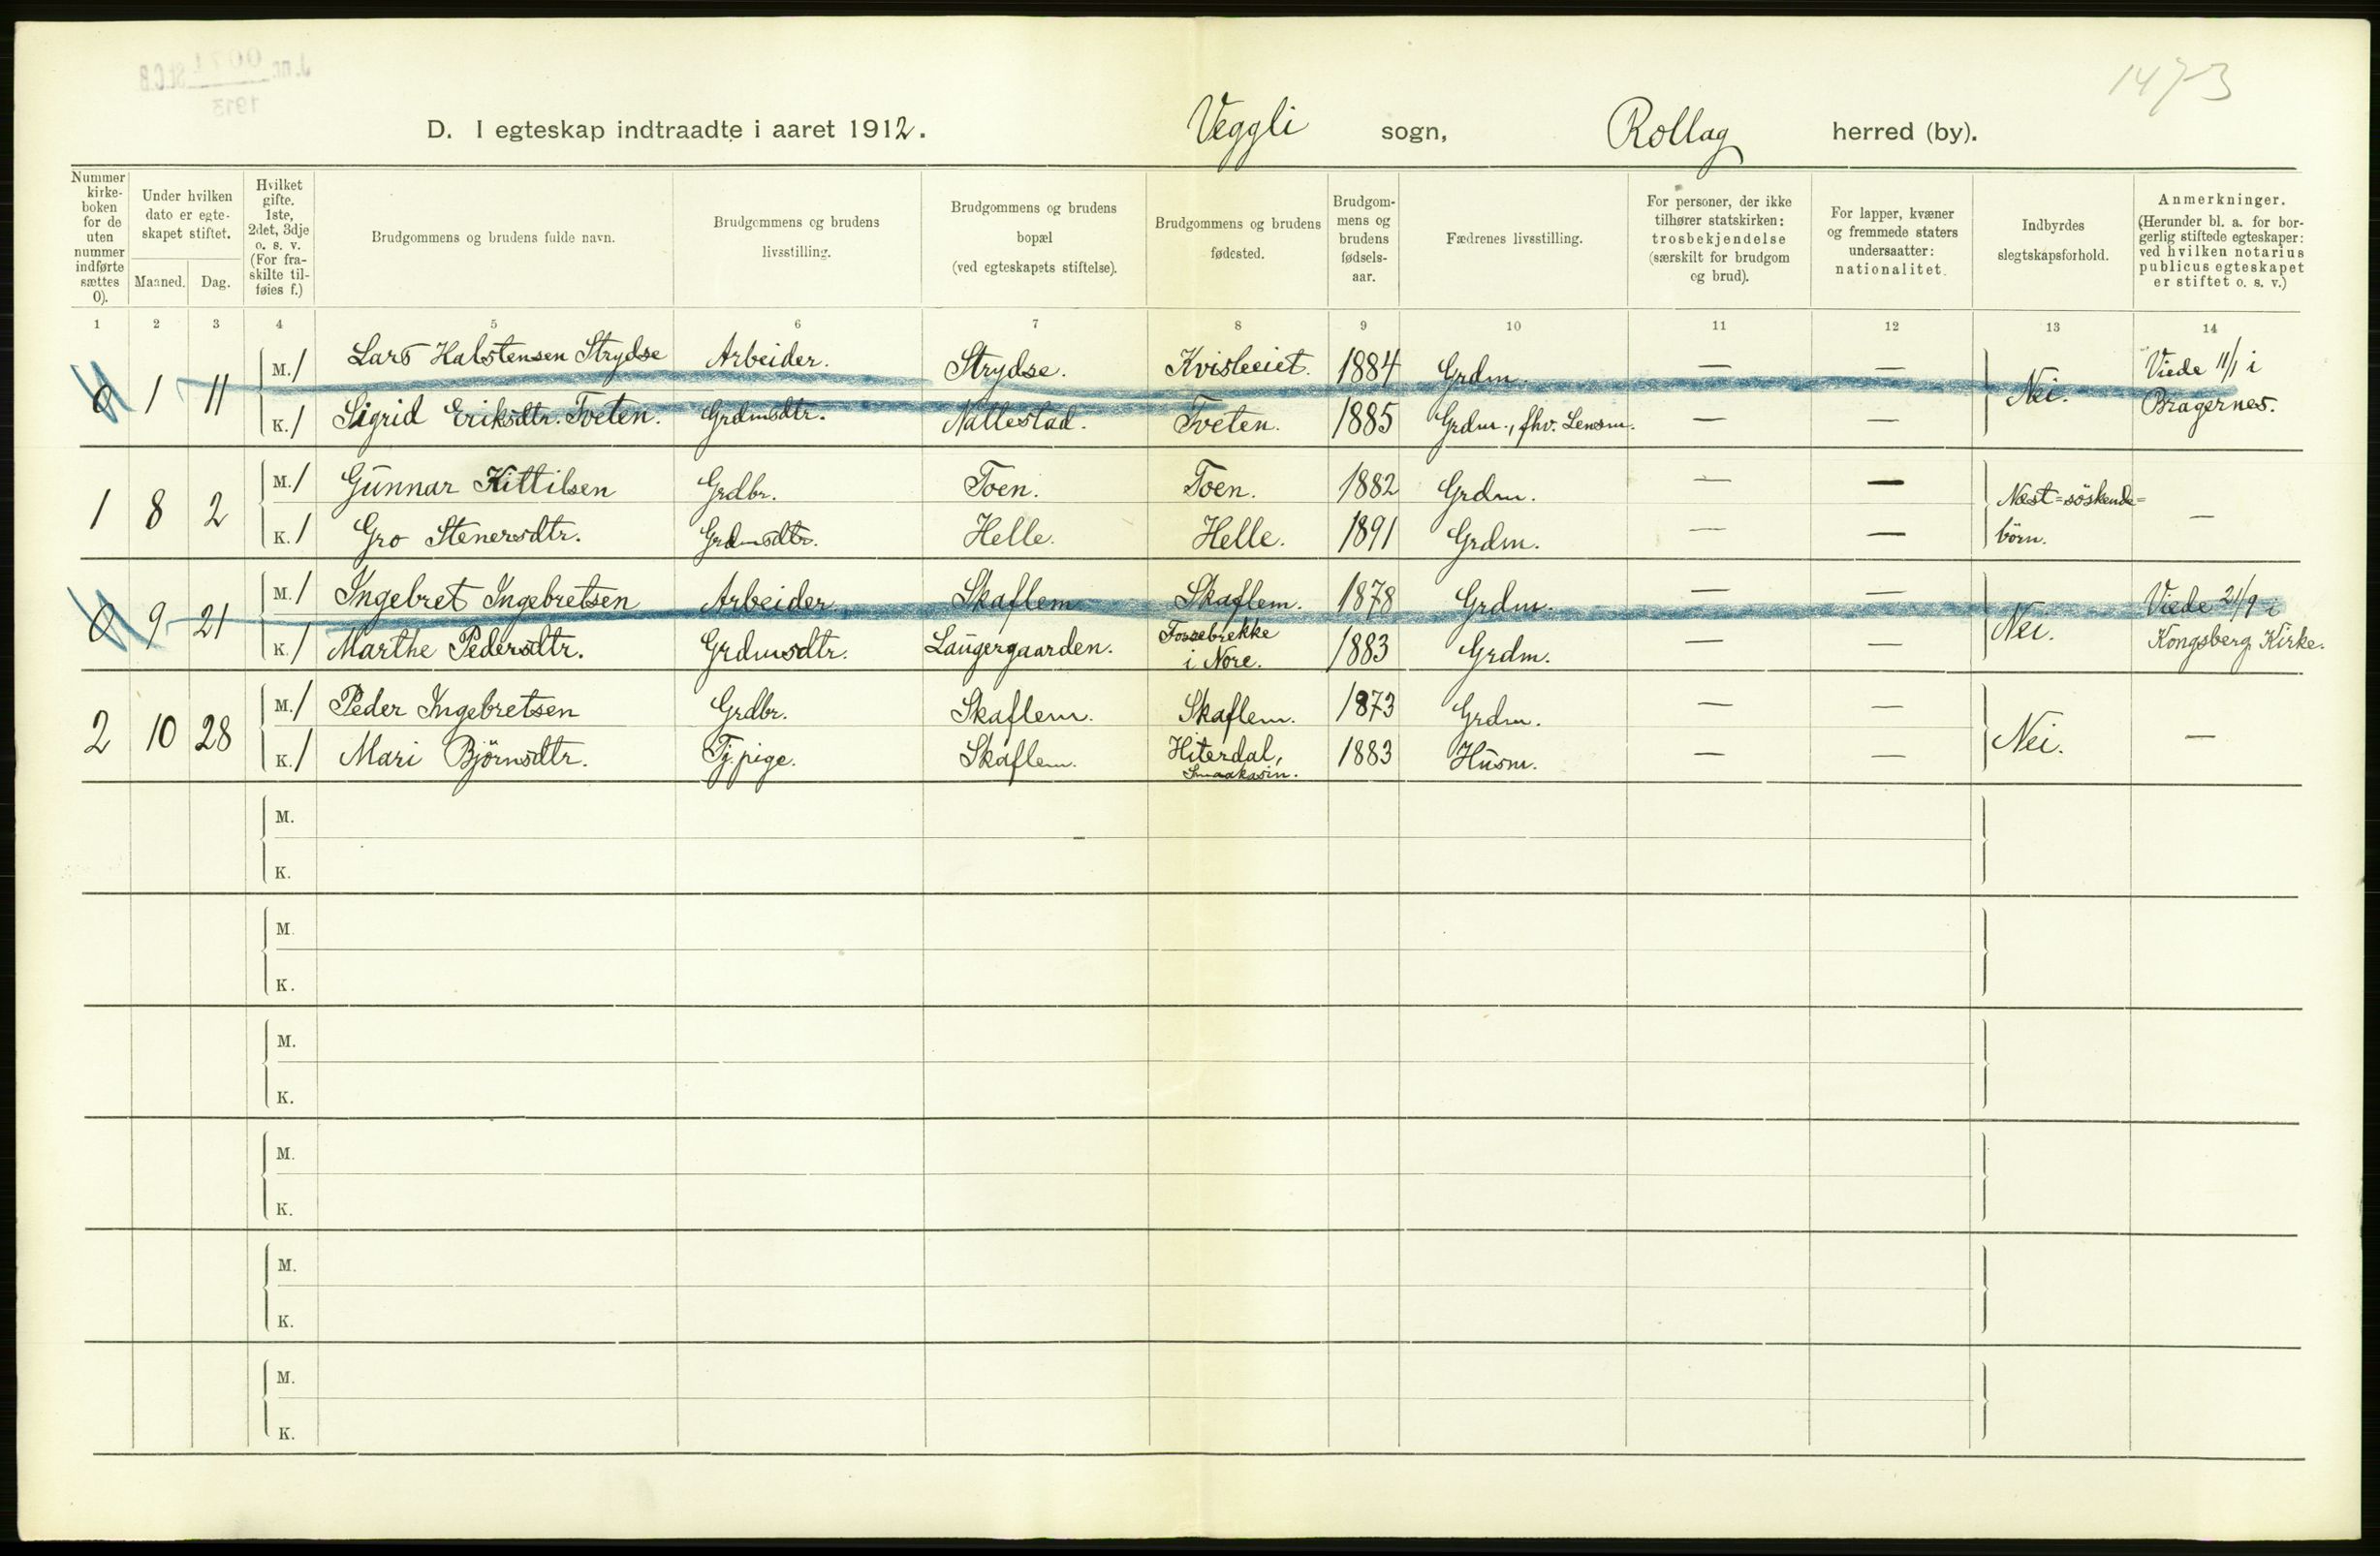 J. nr. 00 St.C.B
1913
1473
D. I egteskap indtraadte i aaret 1912. Veggli sogn, Rollag herred (by).
Nummer kirke-boken for de uten nummer indførte sættes 0).
Under hvilken dato er egte-skapet stiftet.
Maaned. Dag.
Hvilket gifte. 1ste, 2det, 3dje o. s. v. (For fra-skilte til-føies f.)
Brudgommens og brudens fulde navn.
Brudgommens og brudens livsstilling.
Brudgommens og brudens bopæl (ved egteskapets stiftelse).
Brudgommens og brudens fødested.
Brudgom-mens og brudens fødsels-aar.
Fædrenes livsstilling.
For personer, der ikke tilhører statskirken: trosbekjendelse (særskilt for brudgom og brud).
For lapper, kvæner og fremmede staters undersaatter: nationalitet.
Indbyrdes slegtskapsforhold.
Anmerkninger. (Herunder bl. a. for bor-gerlig stiftede egteskaper: ved hvilken notarius publicus egteskapet er stiftet o. s. v.)
1 2 3 4 5 6 7 8 9 10 11 12 13 14
0 1 11 M. 1 Lars Halstensen Strydse Arbeider. Strydse. 1884 Grdm. — — Nei. Viede 11/1 i
K. 1 Sigrid Eriksdtr. Tveten. Grdmsdtr. Nattestad. Tveten. 1885 Grdm., fhv. Lensm. — — Bragernes.
1 8 2 M. 1 Gunnar Kittilsen Grdbr. Toen. Toen. 1882 Grdm. — — Næst-söskende-
K. 1 Gro Stenersdtr. Grdmsdtr. Helle. Helle. 1891 Grdm. — — börn. —
0 9 21 M. 1 Ingebret Ingebretsen Arbeider. Skaflem Skaflem. 1878 Grdm. — — Nei. Viede 21/9 i
K. 1 Marthe Pedersdtr. Grdmsdtr. Laugergaarden. Fossebrekke i Nore. 1883 Grdm. — — Kongsberg Kirke.
2 10 28 M. 1 Peder Ingebretsen Grdbr. Skaflem. Skaflem. 1873 Grdm. — — Nei. —
K. 1 Mari Björnsdtr. Tj.pige. Skaflem. Hiterdal, 1883 Husm. — —
M.
K.
M.
K.
M.
K.
M.
K.
M.
K.
M.
K.